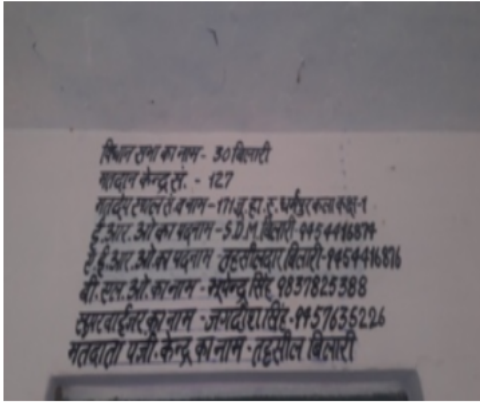 विधान सभा का नाम - 30 बिलारी
मतदान केन्द्र सं. - 127
मतदेय स्थल सं व नाम - 171 पू.हा. धर्मपुर कला कक्ष-1
ई.आर.ओ का पदनाम - S.D.M बिलारी-9454416874
ऐ.ई.आर.ओ का पदनाम -तहसीलदार बिलारी-9454416876
बी.एल.ओ. का नाम - सिंह 9837825388
सुपरवाईजर का नाम - जगदीश सिंह -9457635226
मतदाता पंजी. केन्द्र का नाम - तहसील बिलारी